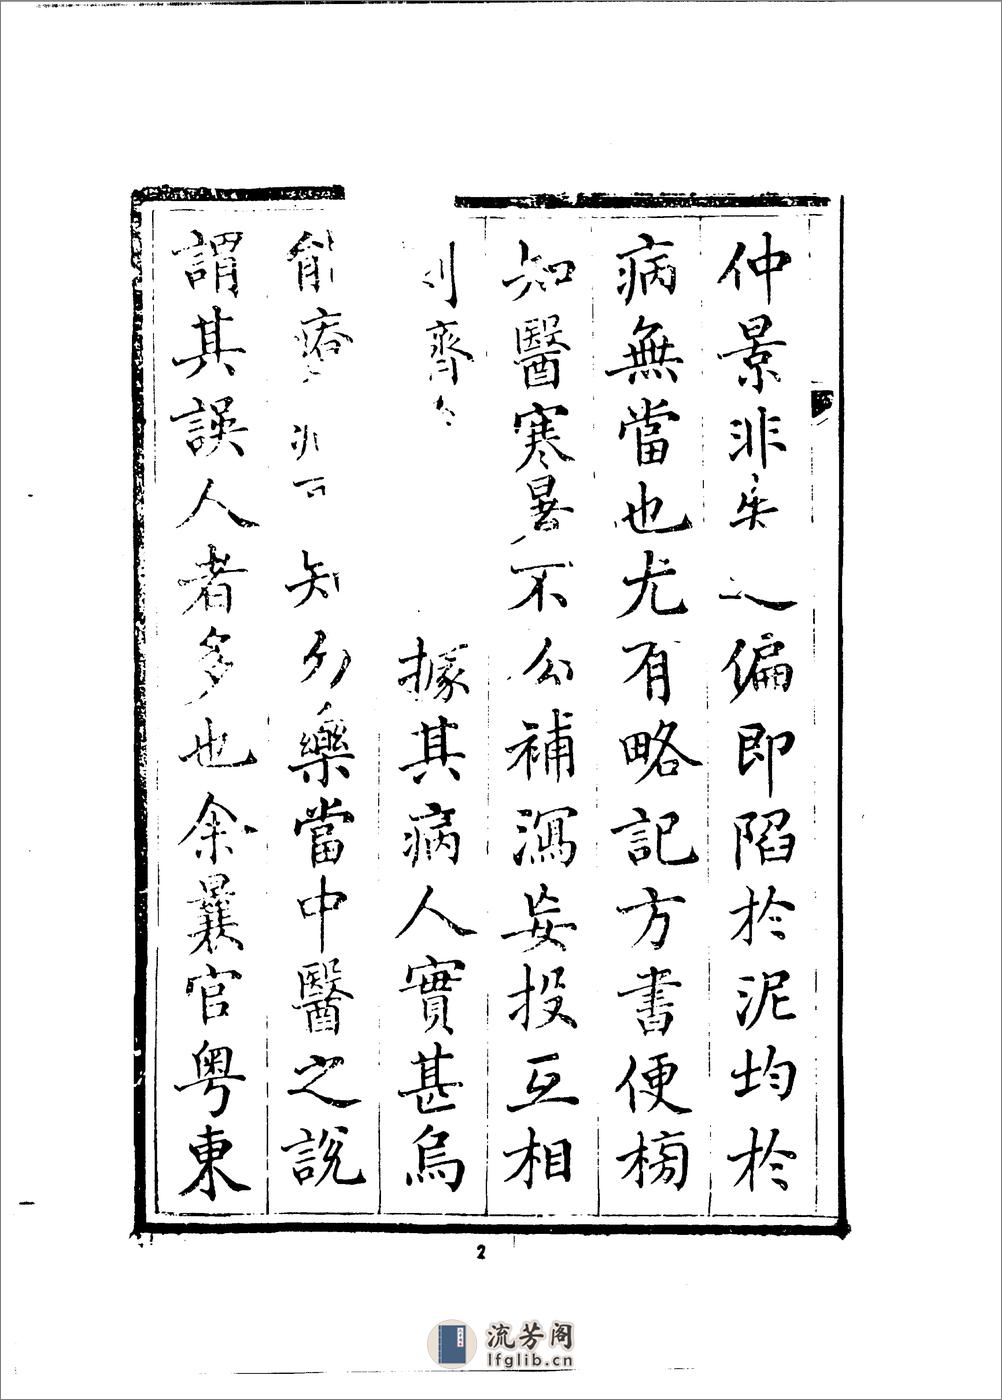 仲景非失之偏即陷於泥均於
病無當也尤有略記方書便榜
知醫寒暑不公補瀉妄投互相
劑據其病人實甚烏
能瘳知勿藥當中醫之說
謂其誤人者多也余曩官粵東
2
流芳阁
lfglib.cn